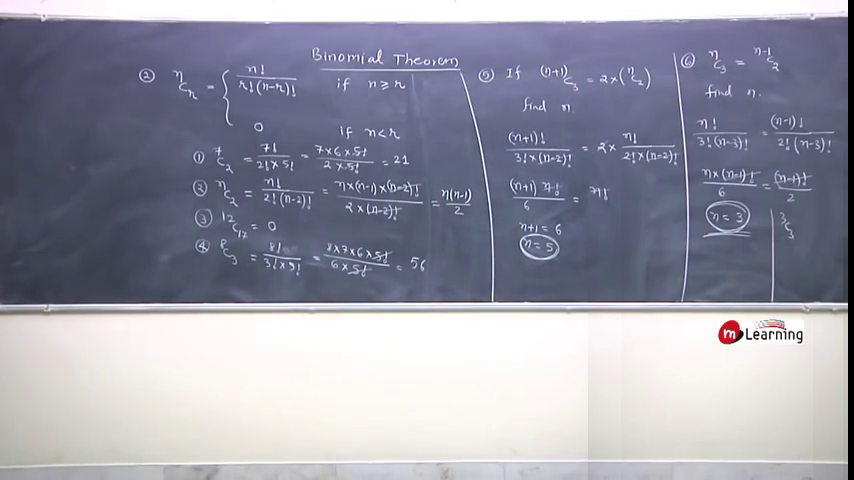 Binomial Theorem
② ⁿCᵣ = { n! / r!(n-r)! if n ≥ r
0 if n < r
① ⁷C₂ = 7! / 2! × 5! = 7×6×5! / 2×5! = 21
② ⁿC₂ = n! / 2!(n-2)! = n×(n-1)×(n-2)! / 2×(n-2)! = n(n-1) / 2
③ ¹²C₁₇ = 0
④ ⁸C₃ = 8! / 3!×5! = 8×7×6×5! / 6×5! = 56
⑤ If ⁽ⁿ⁺¹⁾C₃ = 2×(ⁿC₂)
find n.
(n+1)! / 3!×(n-2)! = 2× n! / 2!×(n-2)!
(n+1) n! / 6 = n!
n+1 = 6
n = 5
⑥ ⁿC₃ = ⁿ⁻¹C₂
find n.
n! / 3!(n-3)! = (n-1)! / 2!(n-3)!
n×(n-1)! / 6 = (n-1)! / 2
n = 3
³C₃
m Learning